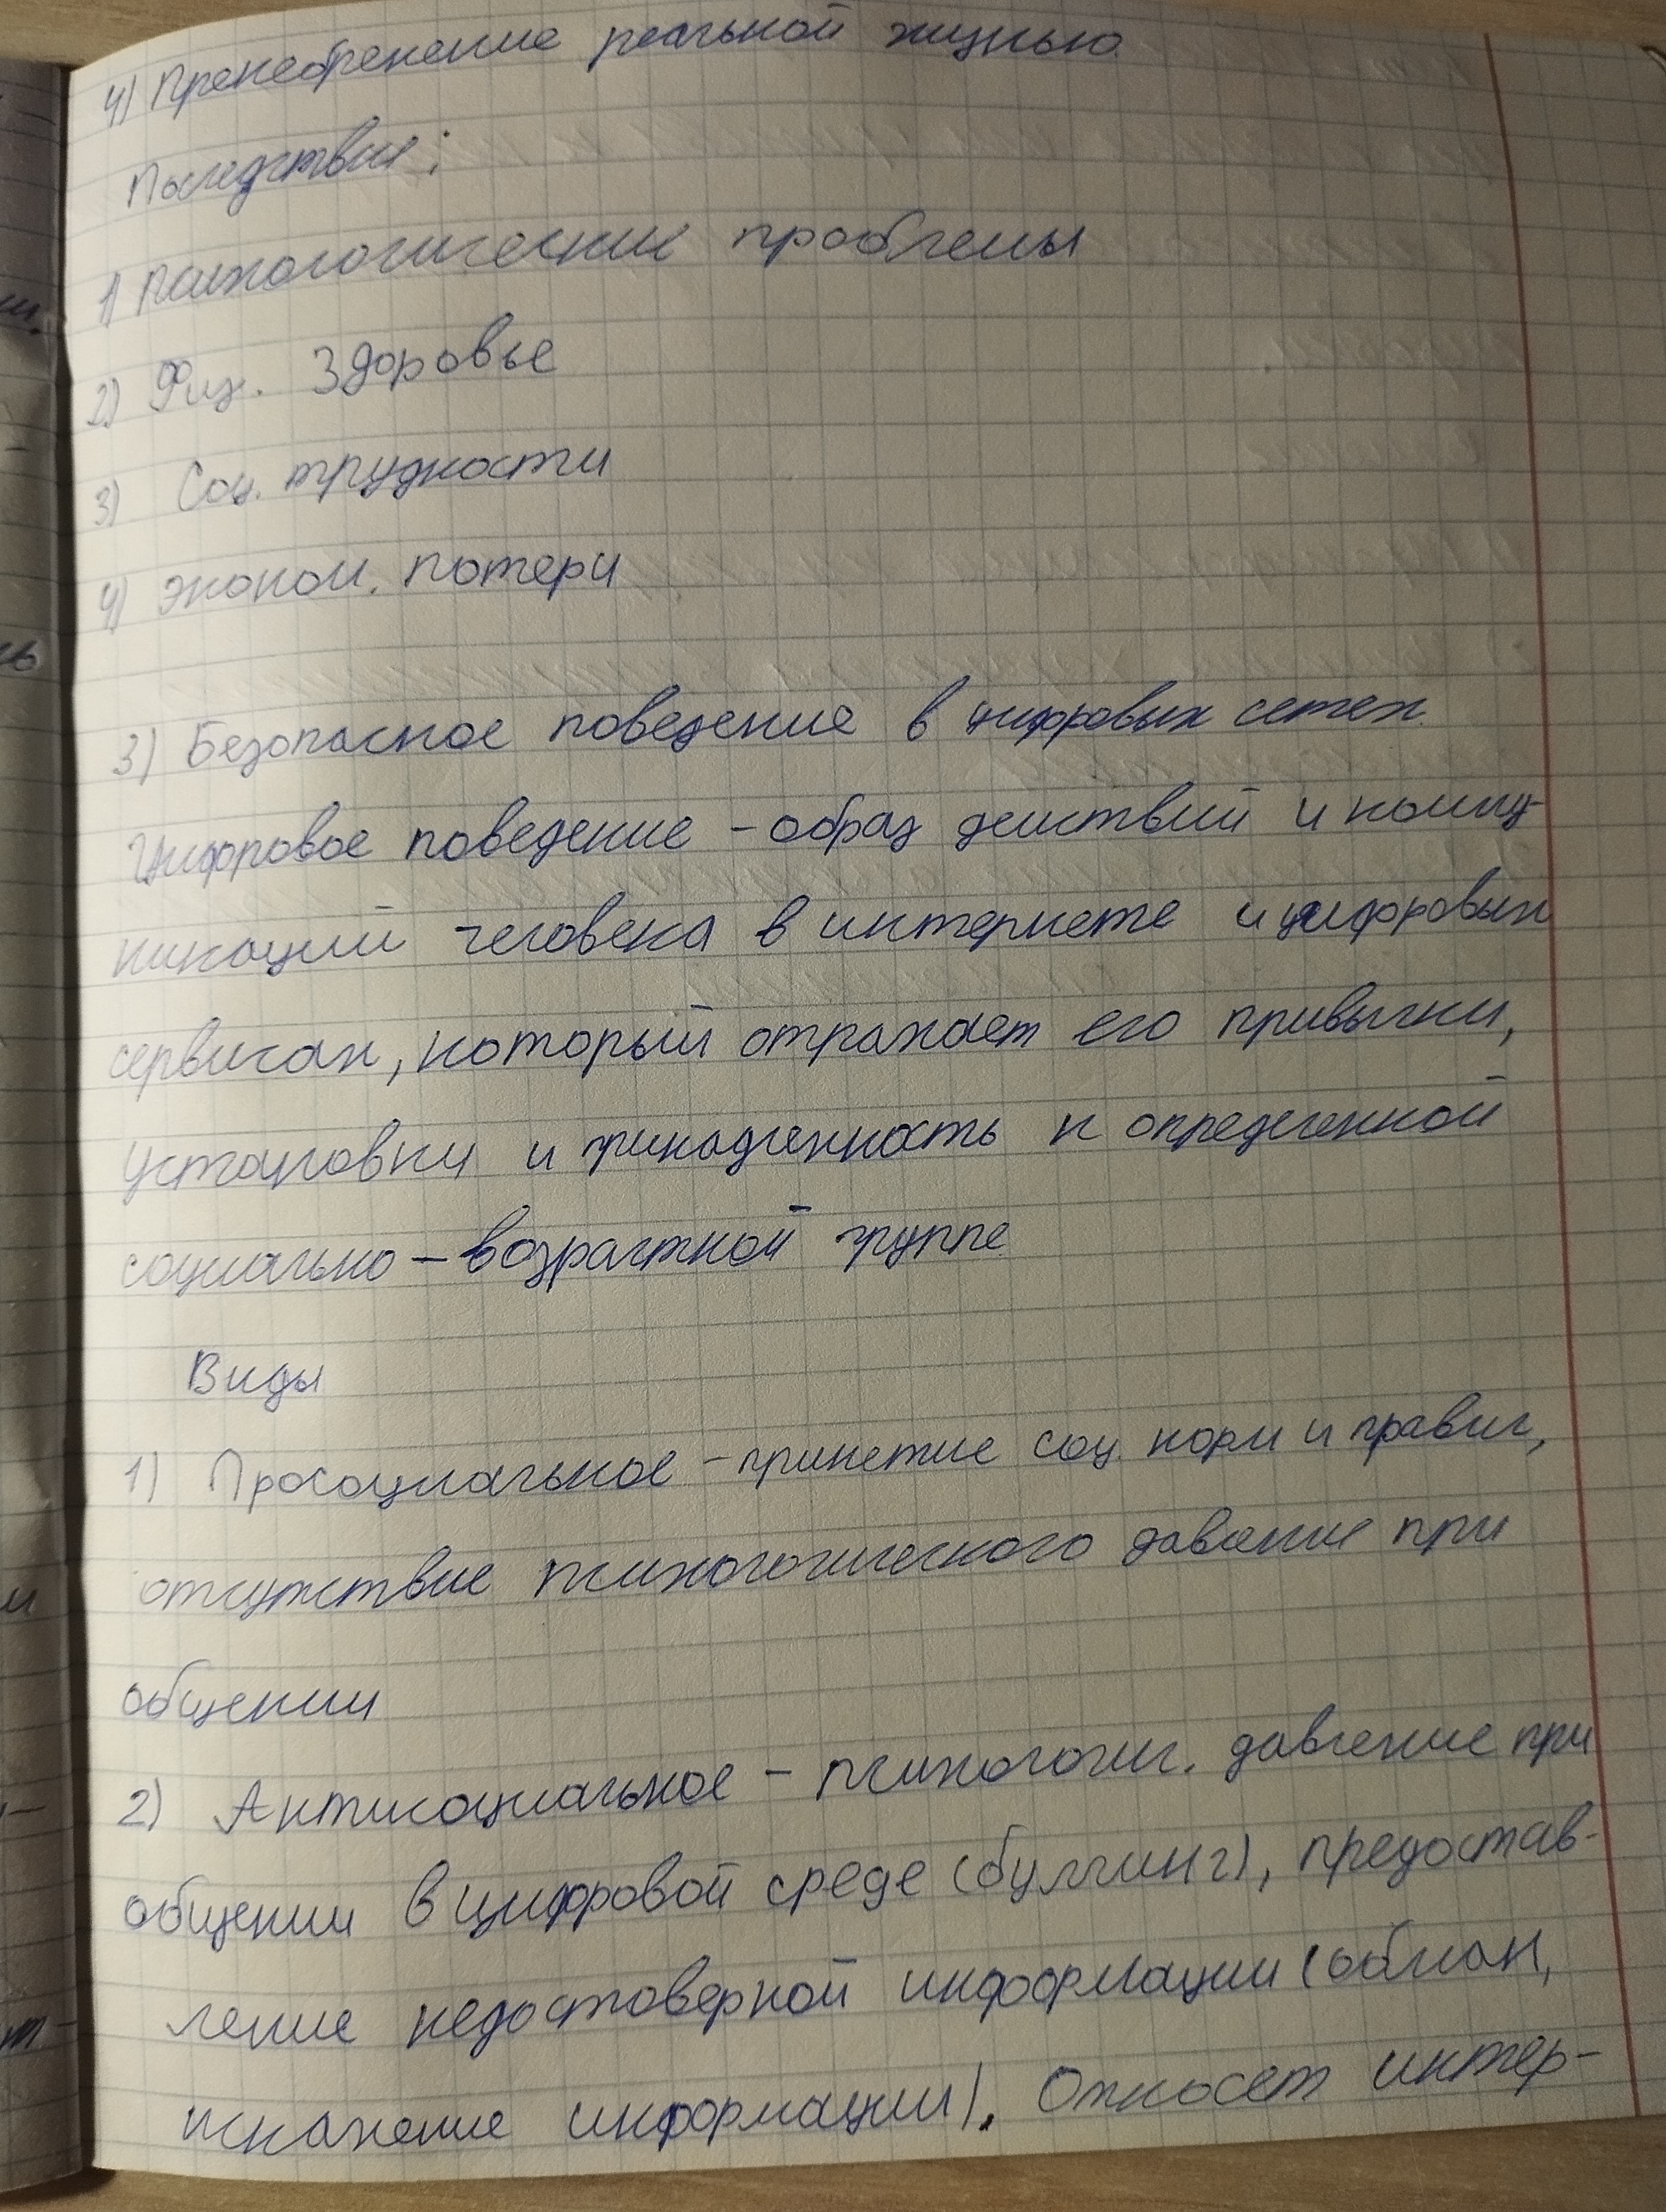 4) Пренебрежение реальной жизнью.
Последствие:
1) Патологические проблемы
2) Физ. Здоровье
3) Соц. трудности
4) эконом. потери
3) Безопасное поведение в цифровых сетях.
Цифровое поведение - образ действий и комму-
никаций человека в интернете и цифровых
сервисах, который отражает его привычки,
установки и принадленность к определенной
социально - возрастной группе
Виды
1) Просоциальное - принетие соц. норм и правил,
отсутствие психологического давление при
общении
2) Антисоциальное - психологич. давление при
общении в цифровой среде (буллинг), предостав-
ление недостоверной информации (обман,
искажение информации). Относет интер-